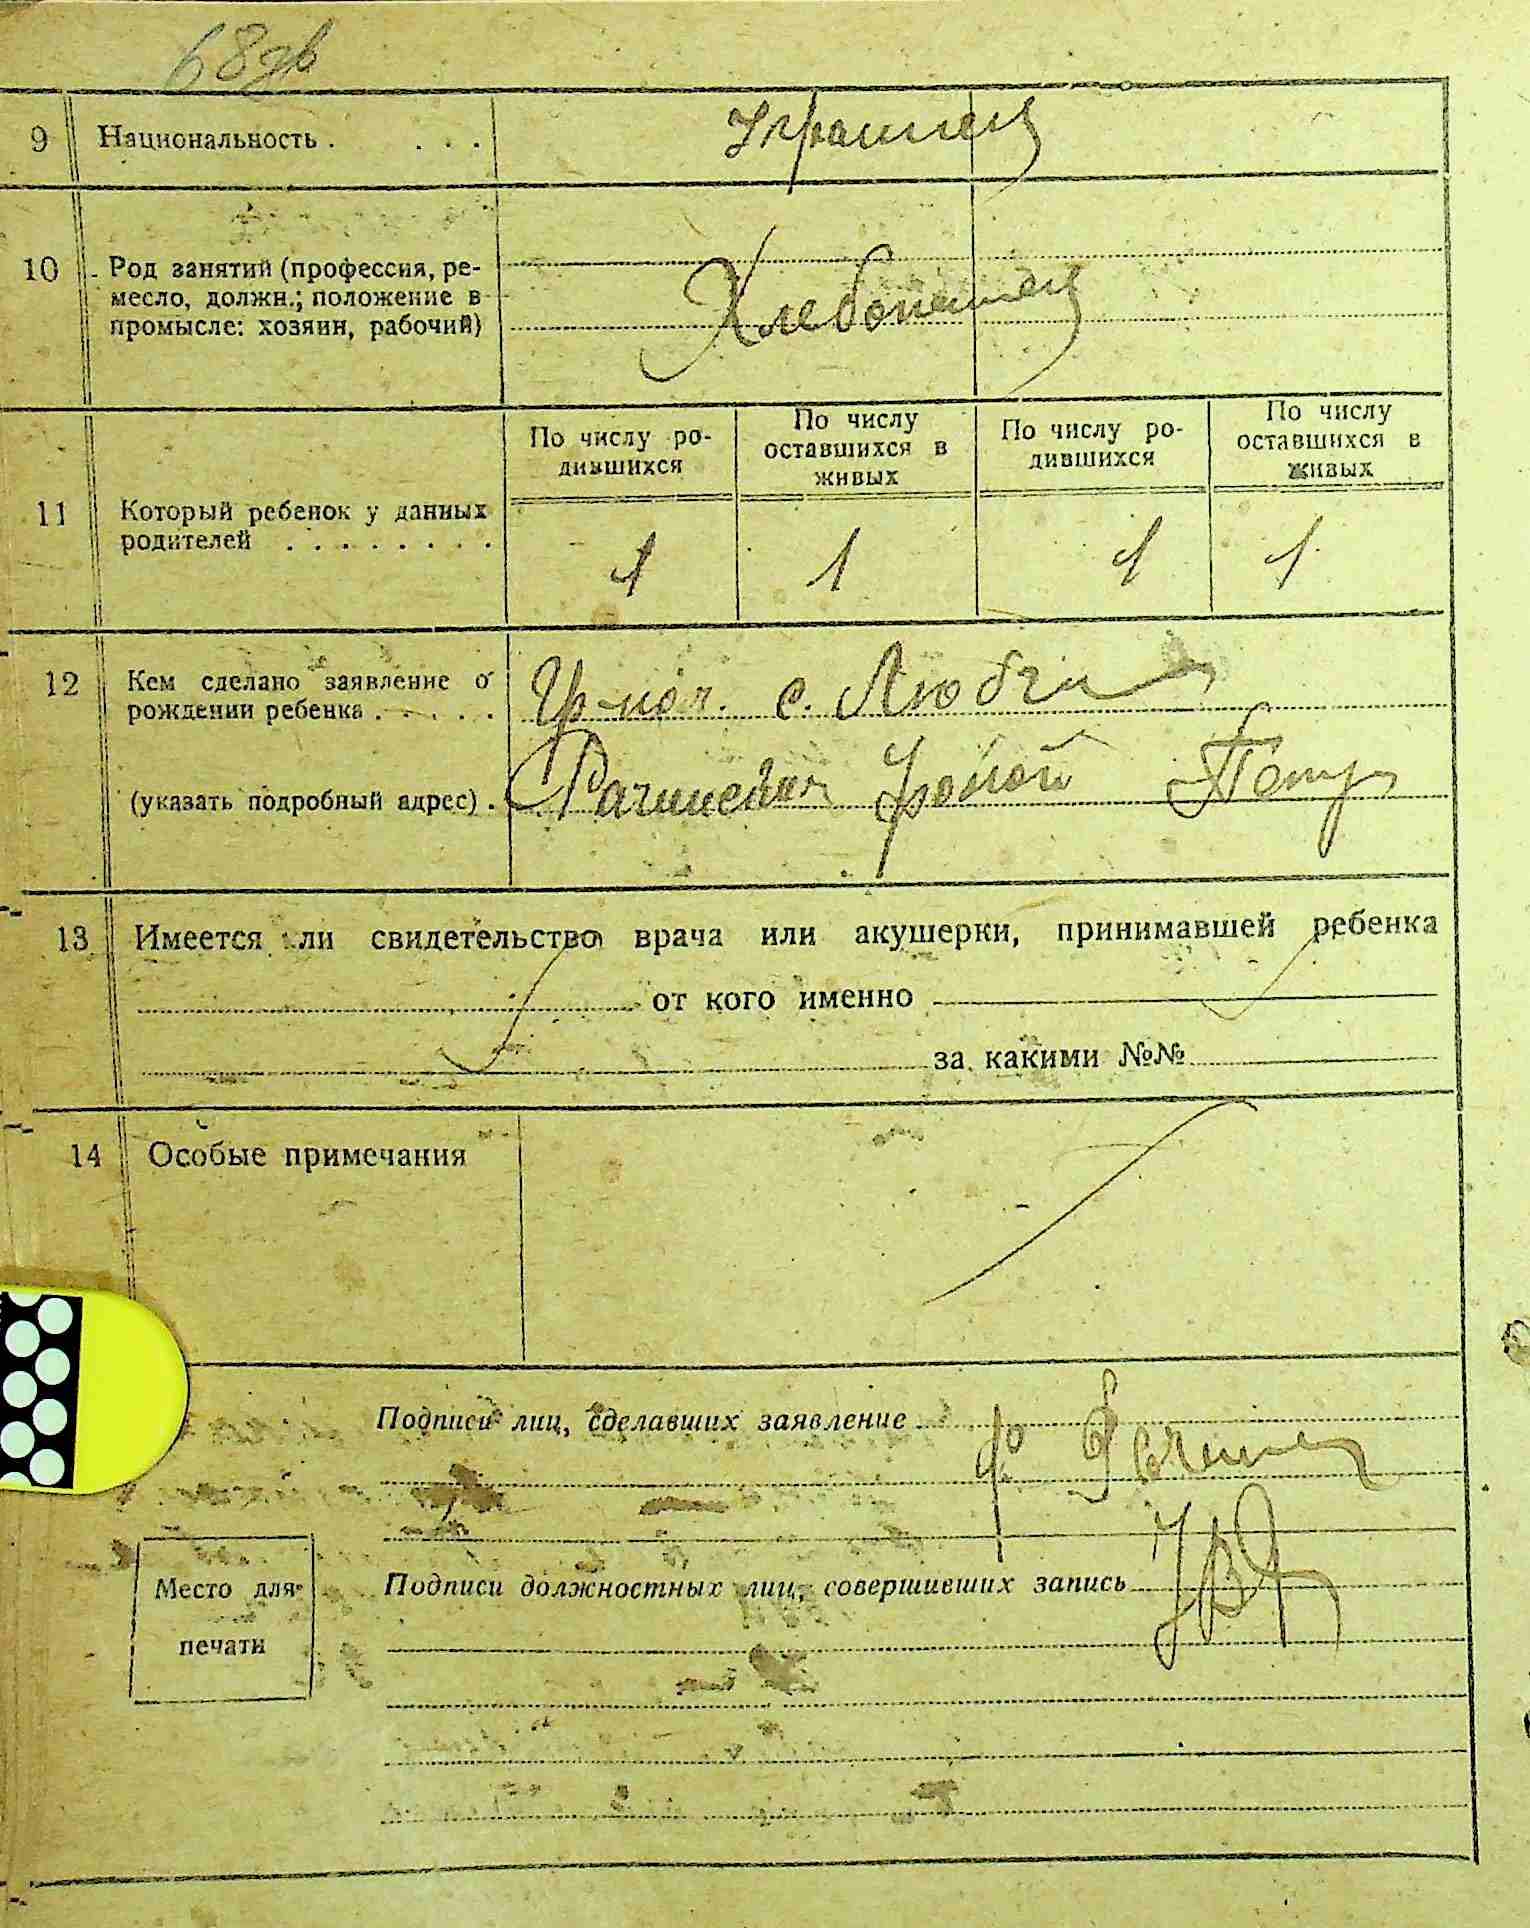 68зв
9 Национальность . . . . Украинец
10 Род занятий (профессия, ре-
месло, должн.; положение в
промысле: хозяин, рабочий)
Хлебопашец
По числу ро-
дившихся
По числу
оставшихся в
живых
По числу ро-
дившихся
По числу
оставшихся в
живых
11 Который ребенок у данных
родителей . . . . . . . .
1 1 1 1
12 Кем сделано заявление о
рождении ребенка . . . . .
(указать подробный адрес) .
с. Любч
Петр
13 Имеется ли свидетельство врача или акушерки, принимавшей ребенка
от кого именно
за какими №№
14 Особые примечания
Подписи лиц, сделавших заявление
Место для
печати
Подписи должностных лиц, совершивших запись